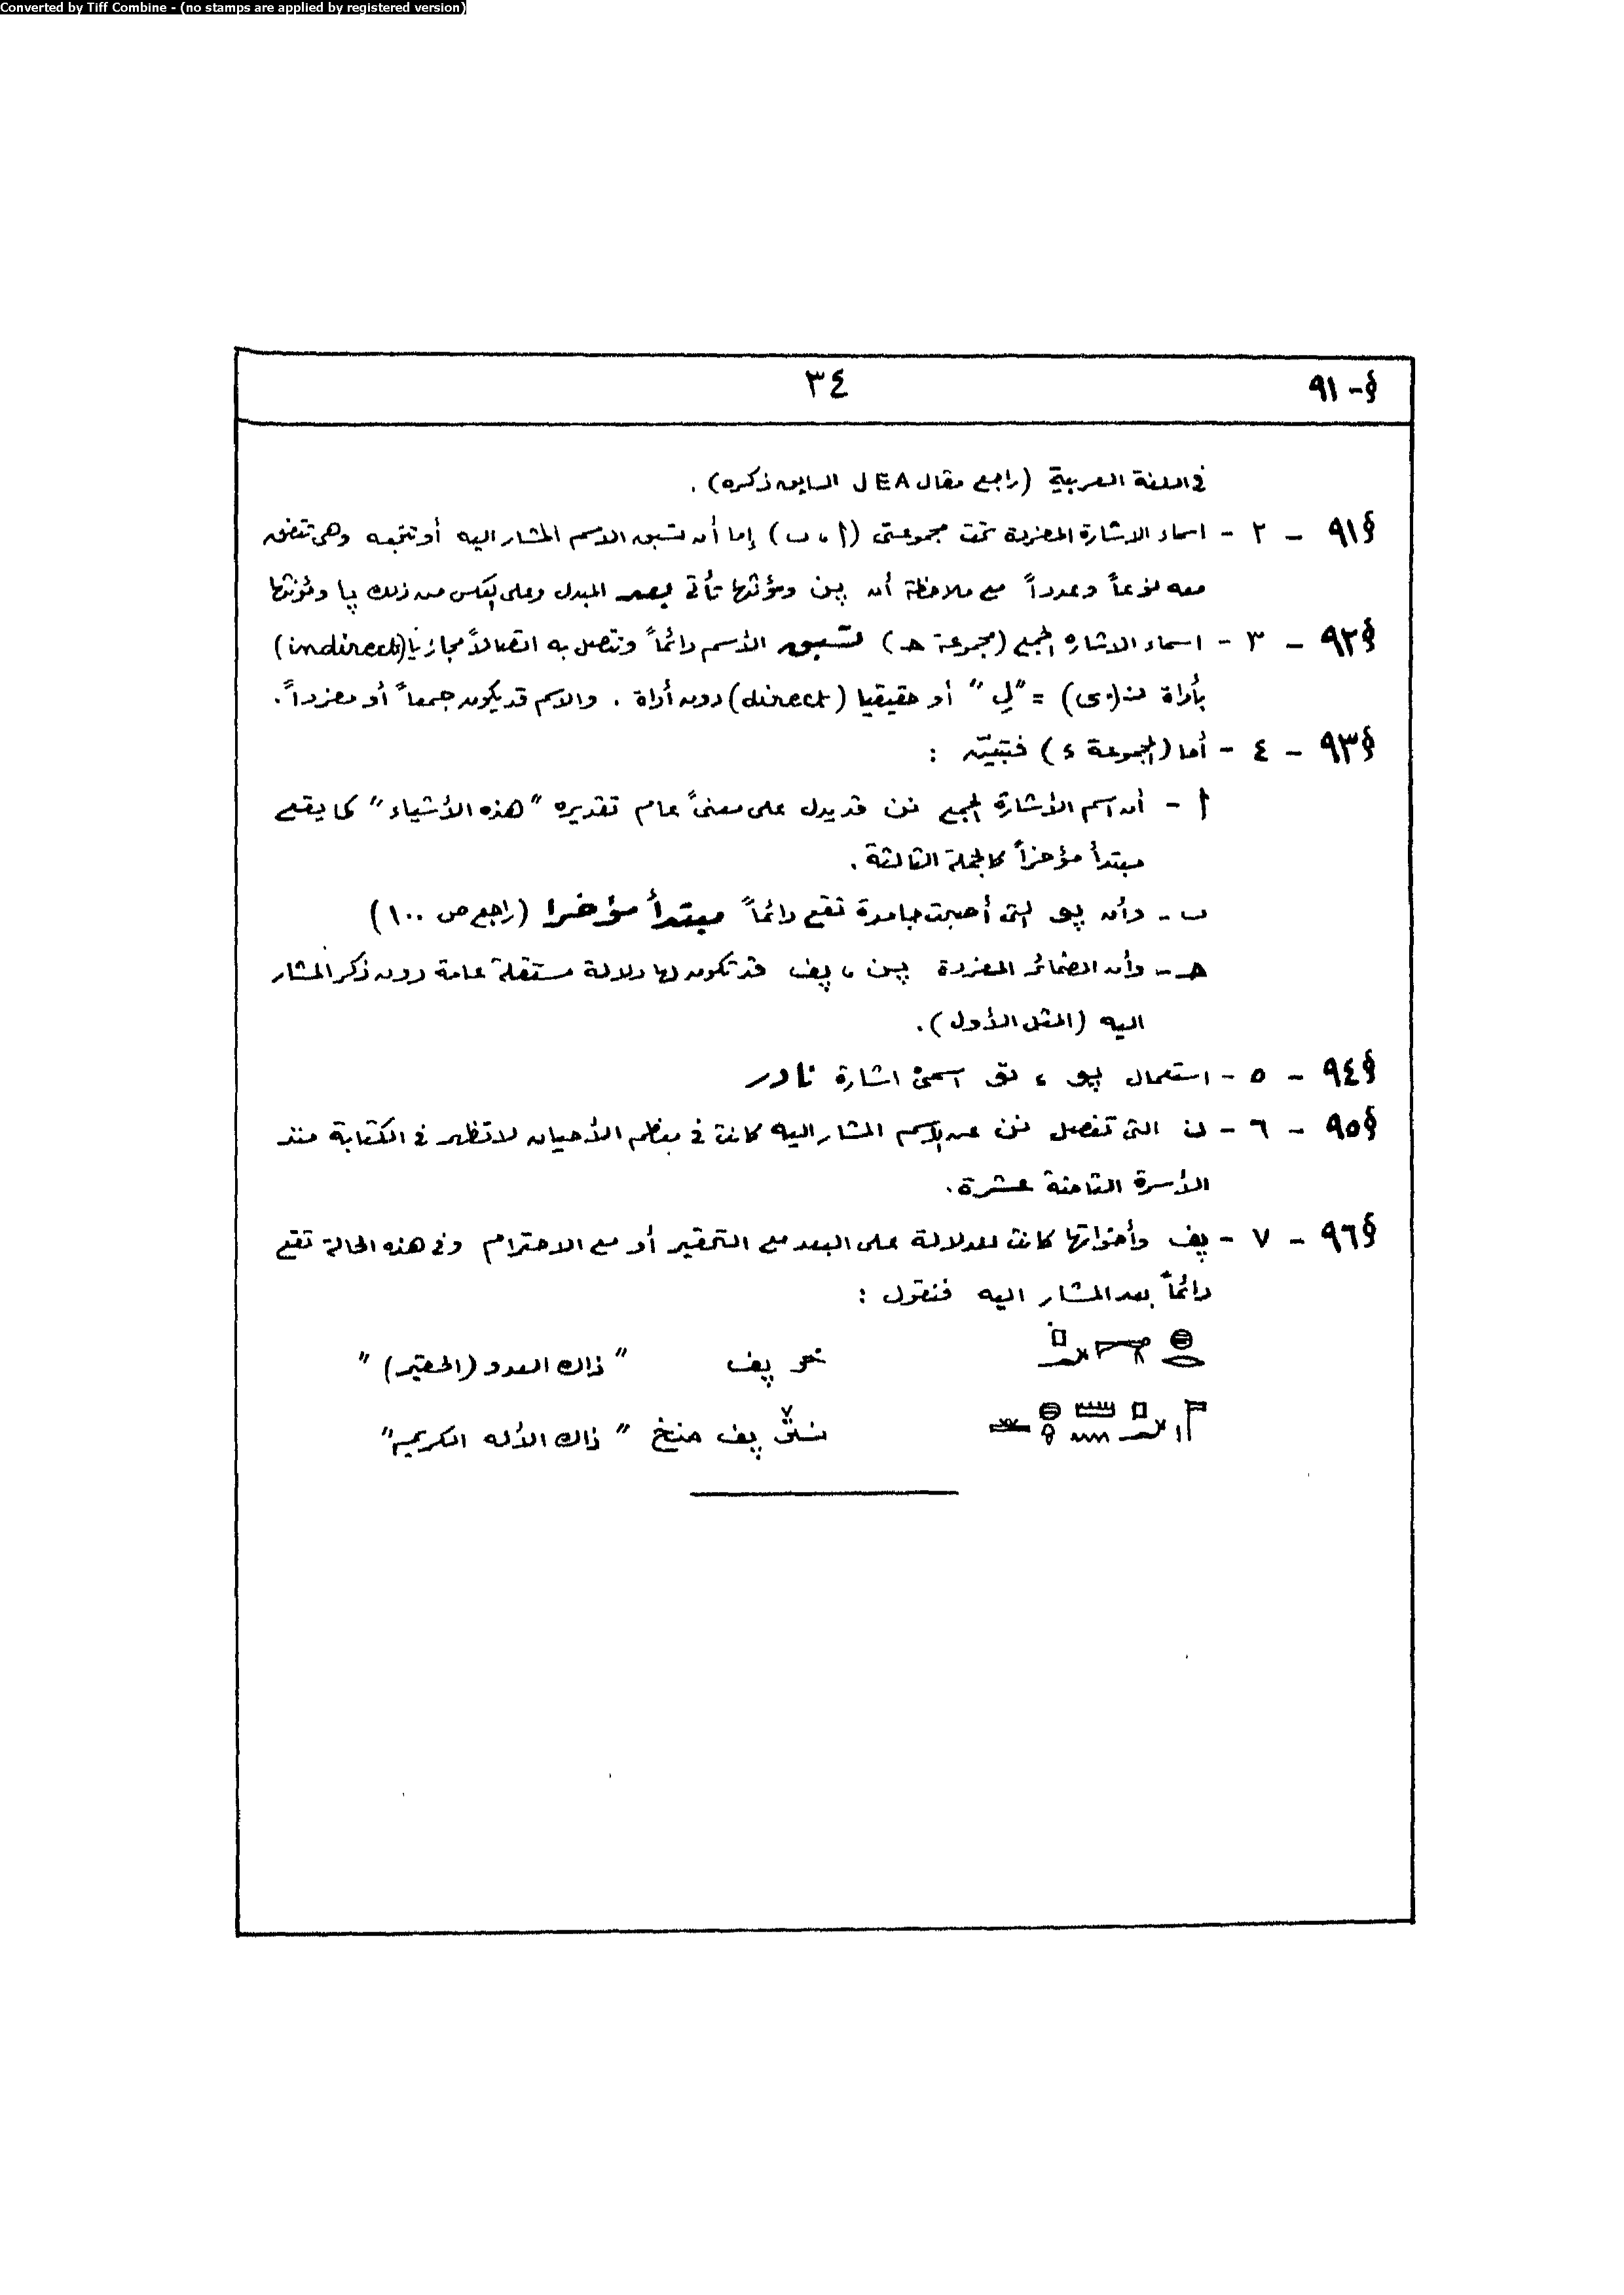 Converted by Tiff Combine - (no stamps are applied by registered version)
§ - ٩١
٣٤
فى اللغة العربية (راجع مقال JEA السابق ذكره) .
§٩١ - ٢ - اسماء الاشارة المفردة تحت مجموعتى (أ ، ب) إما أن تسبق الاسم المشار اليه أو تتبعه وهى تتفق
معه نوعاً وعدداً مع ملاحظة أن پن ومؤنثها تأتى بعد المبدل وعلى العكس من ذلك پا ومؤنثها
§٩٢ - ٣ - اسماء الاشاره الجمع (مجموعة حـ) تسبق الأسم دائماً وتتصل به اتصالاً مجازياً (indirect)
بأداة ن (نى) = "لِ" أو حقيقيا (direct) دون أداة . والاسم قد يكون جمعاً أو مفرداً .
§٩٣ - ٤ - أما (المجموعة ء) فتبيّن :
أ - أن اسم الأشارة الجمع نن قد يدل على معنىً عام تقديره "هذه الأشياء" كما يقع
مبتدأ مؤخراً كالجملة الثالثة .
ب - وأن پو التى أصبحت جامدة تقع دائماً مبتدأ مؤخرا (راجع ص ١٠٠)
حـ - وأن الضمائر المفردة پن ، پف قد تكون لها دلالة مستقلة عامة دون ذكر المشار
اليه (المثل الأول) .
§٩٤ - ٥ - استعمال پو ، تو اسمىْ اشارة نادر
§٩٥ - ٦ - ن التى تفصل نن عن الاسم المشار اليه كانت فى معظم الأحيان لا تظهر فى الكتابة منذ
الأسرة الثامنة عشرة .
§٩٦ - ٧ - پف وأخواتها كانت للدلالة على البعد مع التحقير أو مع الاحترام وفى هذه الحالة تقع
دائماً بعد المشار اليه فنقول :
خر پف "ذاك العدو (الحقير)"
پف منخ "ذاك الأله الكريم"